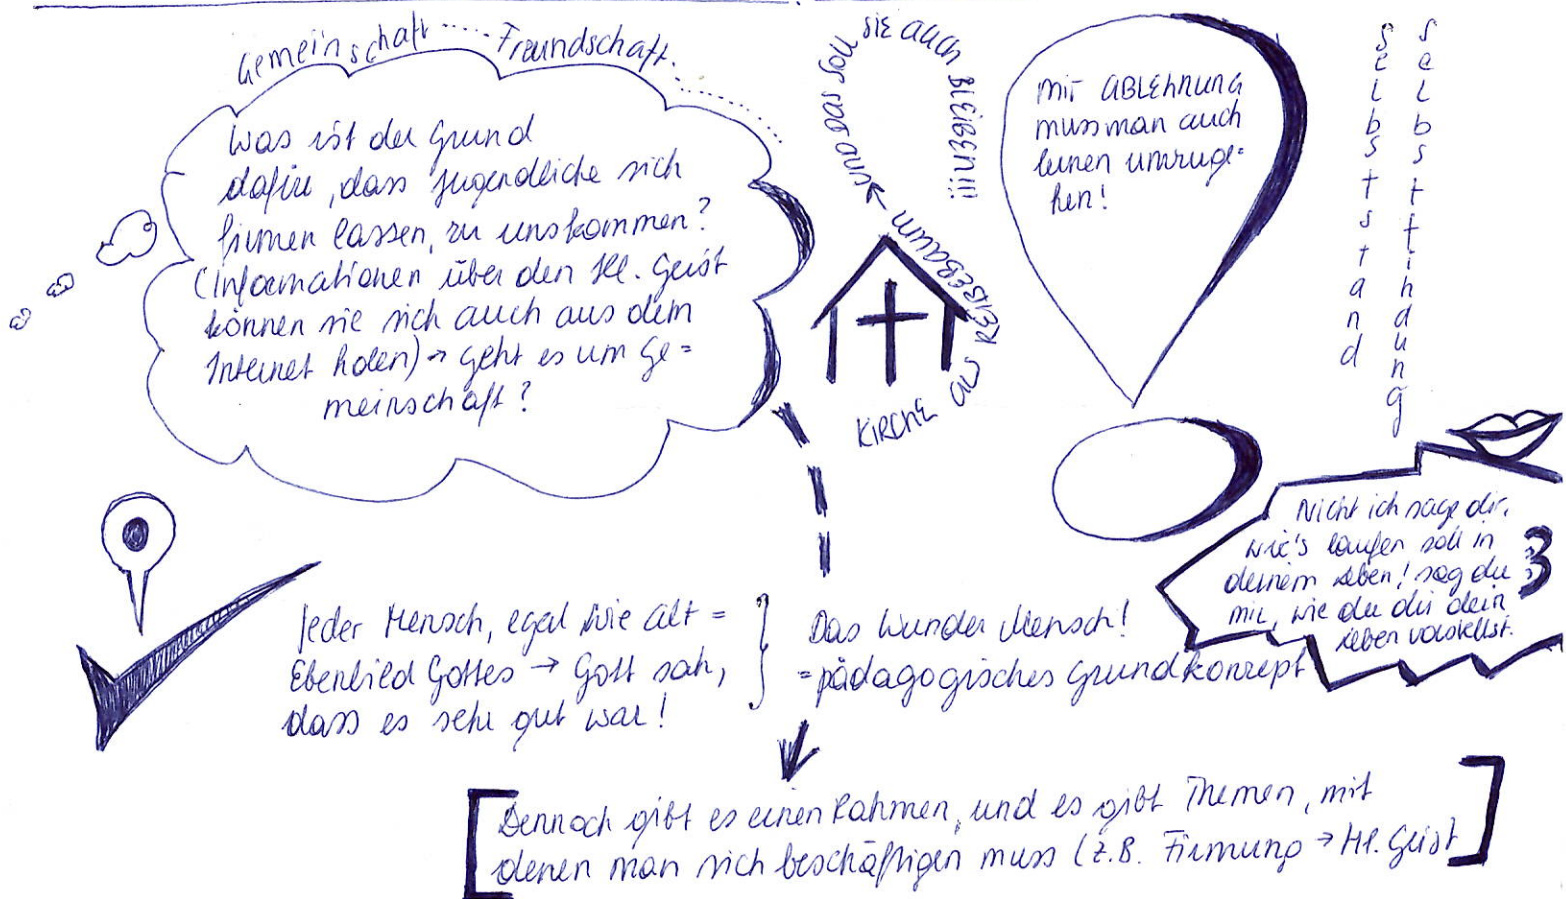 Gemeinschaft ..... Freundschaft.......
Was ist der Grund
dafür, dass Jugendliche sich
firmen lassen, zu uns kommen?
(Informationen über den Hl. Geist
können sie sich auch aus dem
Internet holen) → geht es um Ge=
meinschaft?
KIRCHE ALS REIBEBAUM → AUS DAS SOLL SIE AUCH BLEIBEN!!!
Mit ABLEHNUNG
muss man auch
lernen umzuge=
hen!
Selbststand
Selbstfindung
Nicht ich sage dir,
wie's laufen soll in
deinem Leben! sag du
mir, wie du dir dein
Leben vorstellst.
3
Jeder Mensch, egal wie alt =
Ebenbild Gottes → Gott sah,
dass es sehr gut war!
Das Wunder Mensch!
= pädagogisches Grundkonzept
[Dennoch gibt es einen Rahmen, und es gibt Themen, mit
denen man sich beschäftigen muss (z.B. Firmung → Hl. Geist]